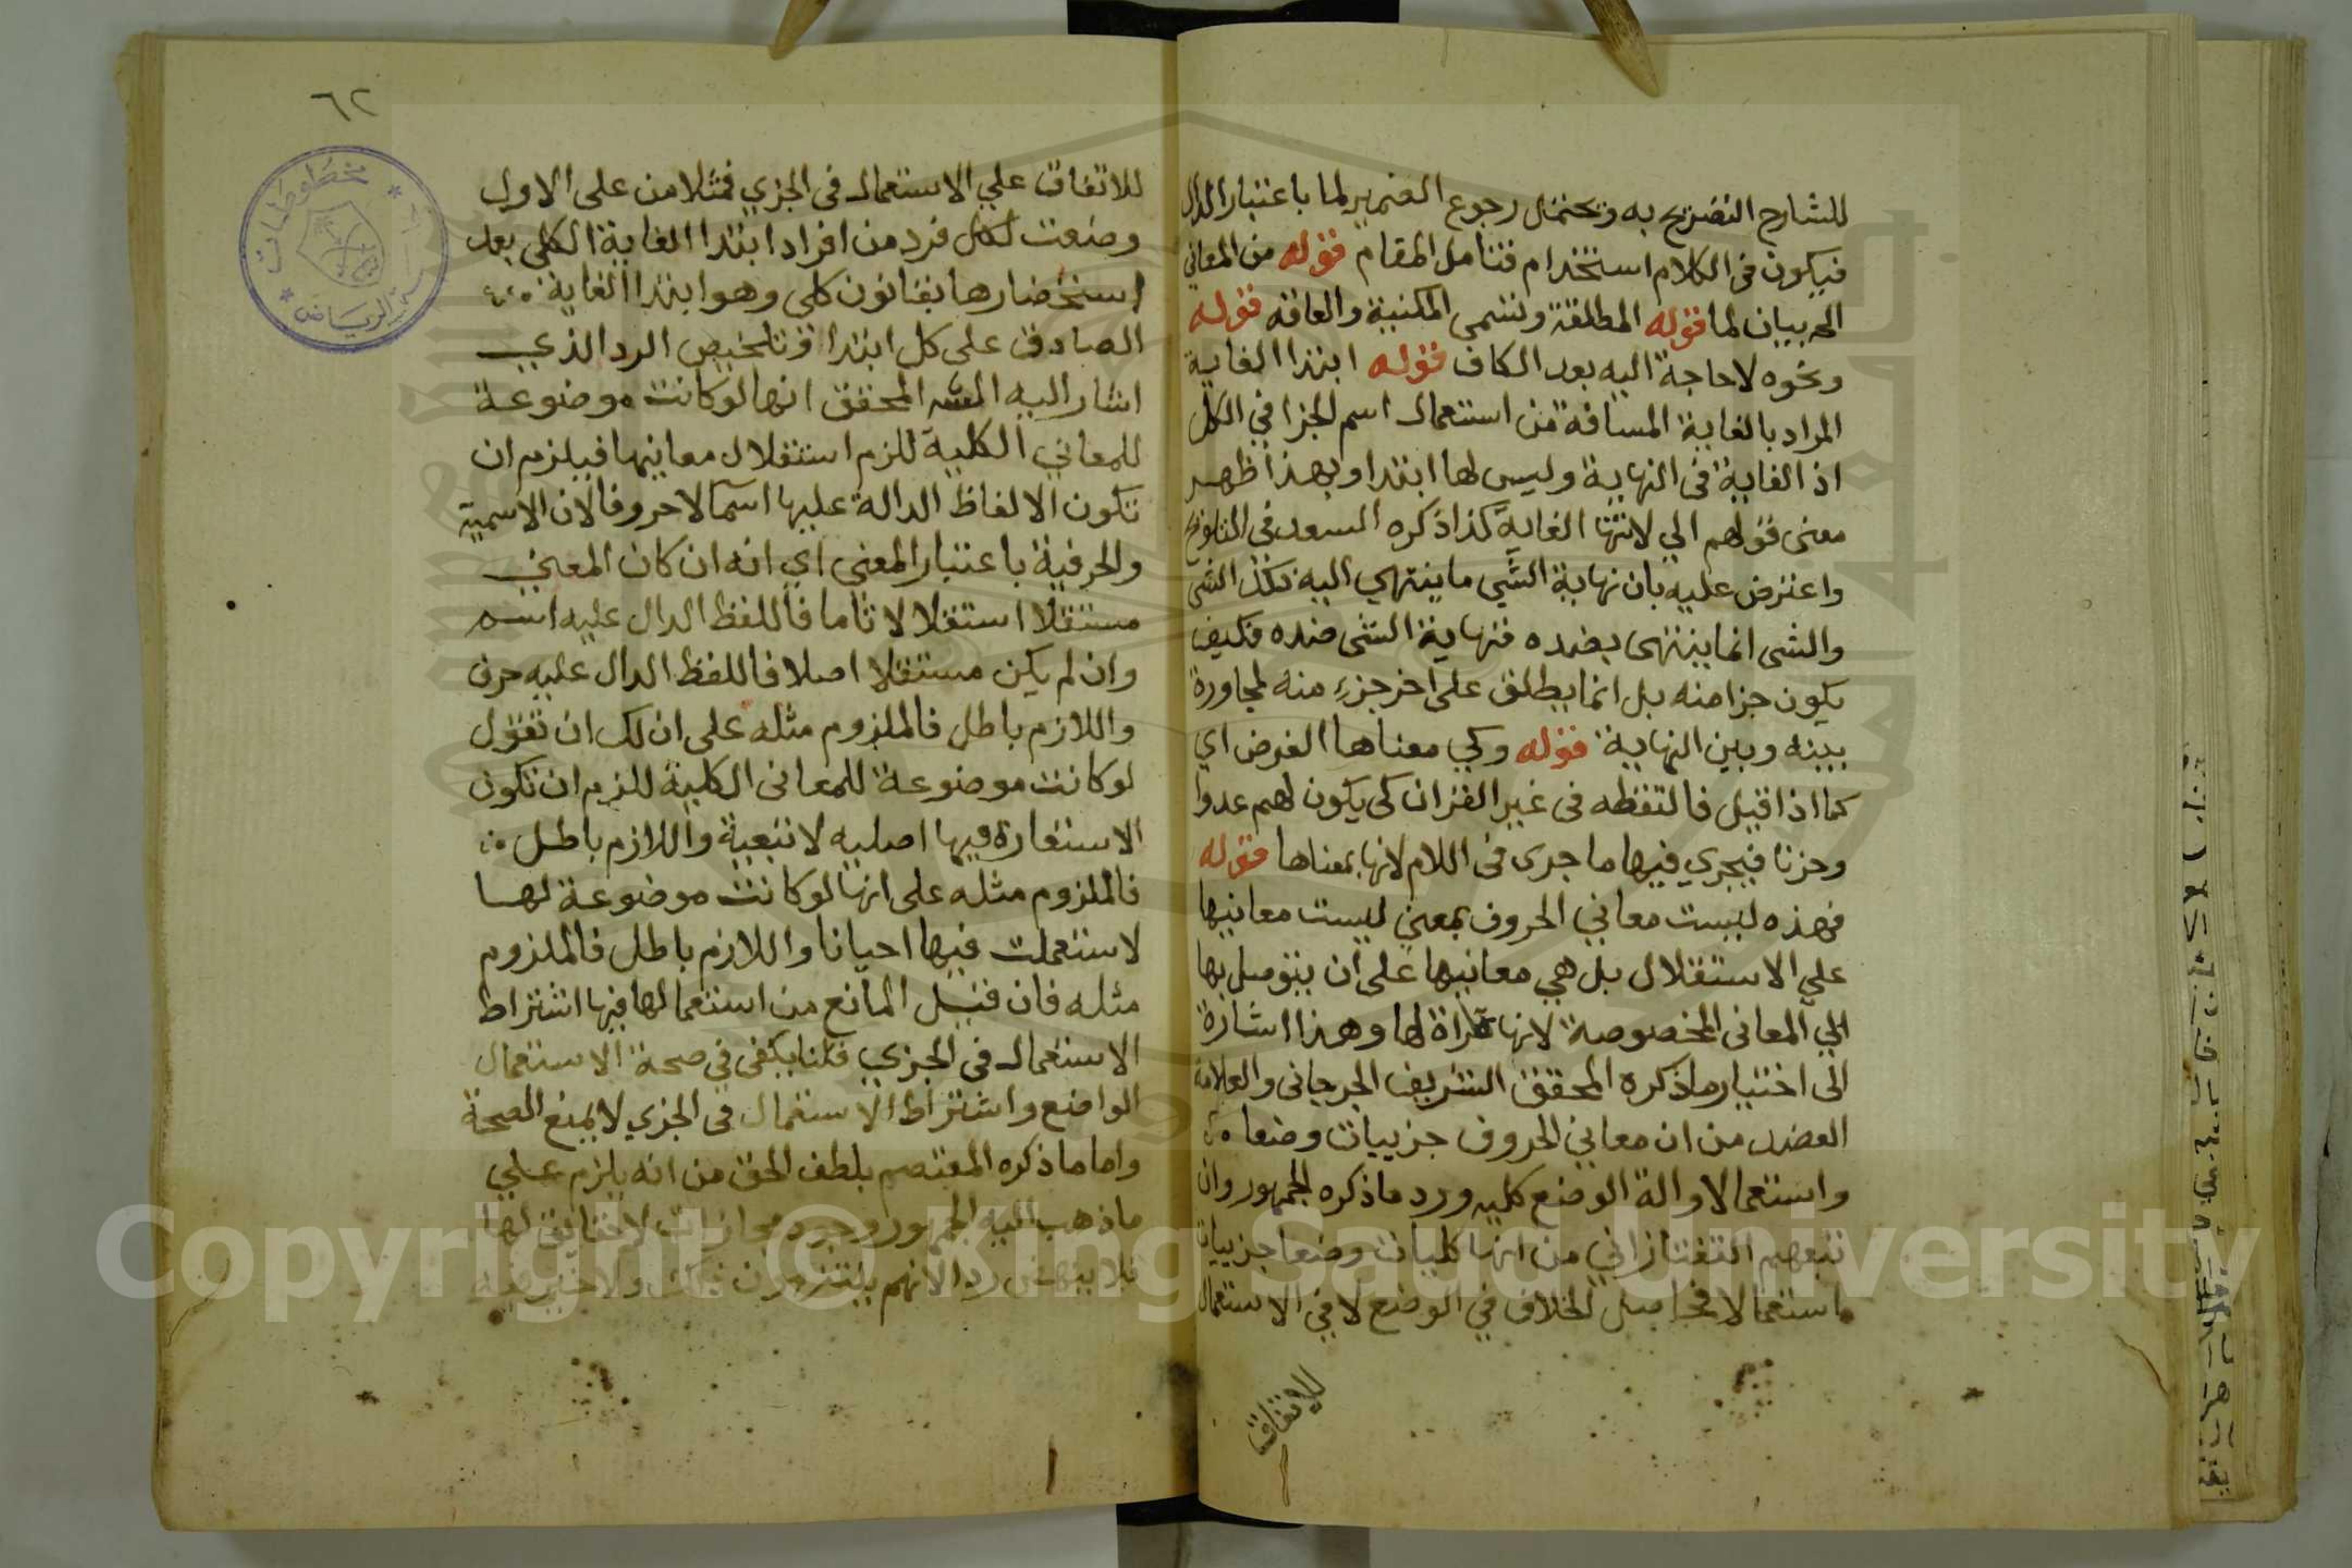 للشارح التصريح به ويحتمل رجوع الضمير لما باعتبار الدال
فيكون في الكلام استخدام فتامل المقام قوله من المعاني
الخ بيان لما قوله المطلقة وتسمى المكنية والعامة قوله
ونحوه لا حاجة اليه بعد الكاف قوله ابتدا الغاية
المراد بالغاية المسافة من استعمال اسم الجزا في الكل
اذ الغاية في النهاية وليس لها ابتدا وبهذا ظهر
معنى قولهم الي لانتها الغاية كذا ذكره السعد في التلويح
واعترض عليه بان نهاية الشي ما ينتهي اليه ذلك الشي
والشي انما ينتهى بضده فنهاية الشي ضده فكيف
يكون جزا منه بل انما يطلق على اخر جزء منه لمجاورة
بينه وبين النهاية قوله وكي معناها الغرض اي
كما اذا قيل فالتقطه في غير القران كي يكون لهم عدوا
وحزنا فيجري فيها ما جرى في اللام لانها بمعناها قوله
فهذه ليست معاني الحروف بمعني ليست معانيها
علي الاستقلال بل هي معانيها على ان يتوصل بها
الي المعاني المخصوصة لانها مراة لها وهذا اشارة
الى اختيار ما ذكره المحقق الشريف الجرجاني والعلامة
العضد من ان معاني الحروف جزييات وضعا
واستعمالا والة الوضع كليه ورد ما ذكره الجمهور وان
تبعهم التفتازاني من انها كليات وضعا جزييات
استعمالا فحاصل الخلاف في الوضع لا في الاستعمال
للاتفاق
٦٢
مخطوطات
الرياض
للاتفاق علي الاستعمال في الجزي فمثلا من على الاول
وضعت لكل فرد من افراد ابتدا الغاية الكلي بعد
استحضارها بقانون كلي وهو ابتدا الغاية
الصادق على كل ابتدا وتلخيص الرد الذي
اشار اليه المحقق انها لو كانت موضوعة
للمعاني الكلية للزم استقلال معانيها فيلزم ان
تكون الالفاظ الدالة عليها اسما لا حروفا لان الاسمية
والحرفية باعتبار المعنى اي انه ان كان المعني
مستقلا استقلالا تاما فاللفظ الدال عليه اسم
وان لم يكن مستقلا اصلا فاللفظ الدال عليه حرف
واللازم باطل فالملزوم مثله على ان لك ان تقول
لو كانت موضوعة للمعاني الكلية للزم ان تكون
الاستعارة فيها اصليه لا تبعية واللازم باطل
فالملزوم مثله على انها لو كانت موضوعة لها
لاستعملت فيها احيانا واللازم باطل فالملزوم
مثله فان قيل المانع من استعمالها فيها اشتراط
الاستعمال في الجزي قلنا يكفى في صحة الاستعمال
الوضع واشتراط الاستعمال في الجزي لا يمنع الصحة
واما ما ذكره المعتصم بلطف الحق من انه يلزم علي
ما ذهب اليه الجمهور وجود مجازات لا حقايق لها
فلا ينهض ردا لانهم يلتزمون ذلك ولا ضير فيه
Copyright © King Saud University